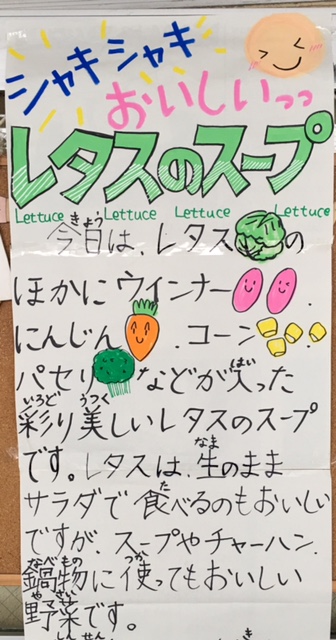 シャキシャキ
おいしいっっ
レタスのスープ
Lettuce Lettuce Lettuce Lettuce
きょう
今日は、レタスの
ほかにウインナー、
にんじん、コーン、
はい
パセリなどが入った
いろど うつく
彩り美しいレタスのスープ
なま
です。レタスは、生のまま
た
サラダで食べるのもおいしい
ですが、スープやチャーハン、
なべもの つか
鍋物に使ってもおいしい
やさい
野菜です。